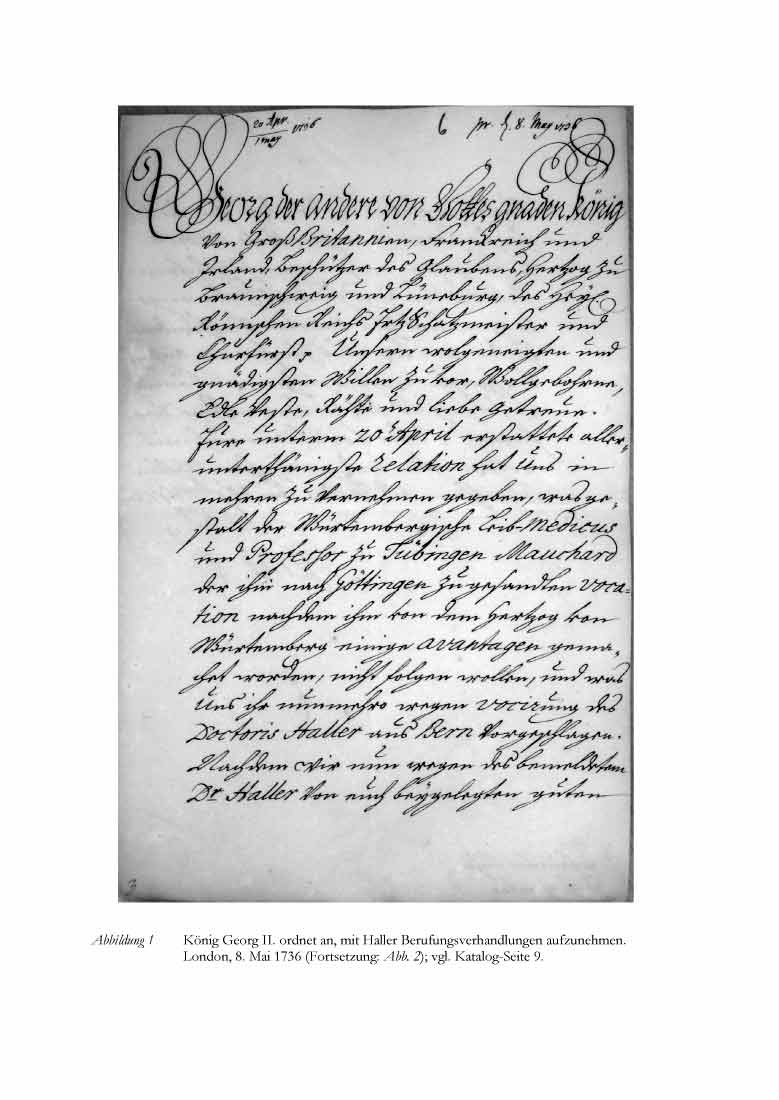 20 Apr. / 1 May 1736
6 pr. d. 8. May 1736
Georg der andere von Gottes gnaden König
von GroßBritannien, Franckreich und
Irland, Beschützer des Glaubens, Hertzog zu
Braunschweig und Lüneburg, des Heyl.
Römischen Reichs ErtzSchatzmeister und
Churfürst p Unsern wolgeneigten und
gnädigsten Willen zuvor, Wollgebohrne,
Edle Veste, Rähte und liebe Getreue.
Eure unterm 20 April erstattete aller-
unterthänigste relation hat Uns in
mehren zu vernehmen gegeben, was ge-
stalt der Würtembergische Leib-Medicus
und Professor zu Tübingen Mauchard
der ihm nach Göttingen zugesandten voca-
tion nachdem ihm von dem Hertzog von
Würtemberg einige avantagen gema-
chet worden, nicht folgen wollen, und was
Uns ihr nunmehro wegen vocirung des
Doctoris Haller aus Bern vorgeschlagen.
Nachdem Wir nun wegen des bemeldetem
Dr Haller von euch beygelegten guten
3
Abbildung 1 König Georg II. ordnet an, mit Haller Berufungsverhandlungen aufzunehmen.
London, 8. Mai 1736 (Fortsetzung: Abb. 2); vgl. Katalog-Seite 9.